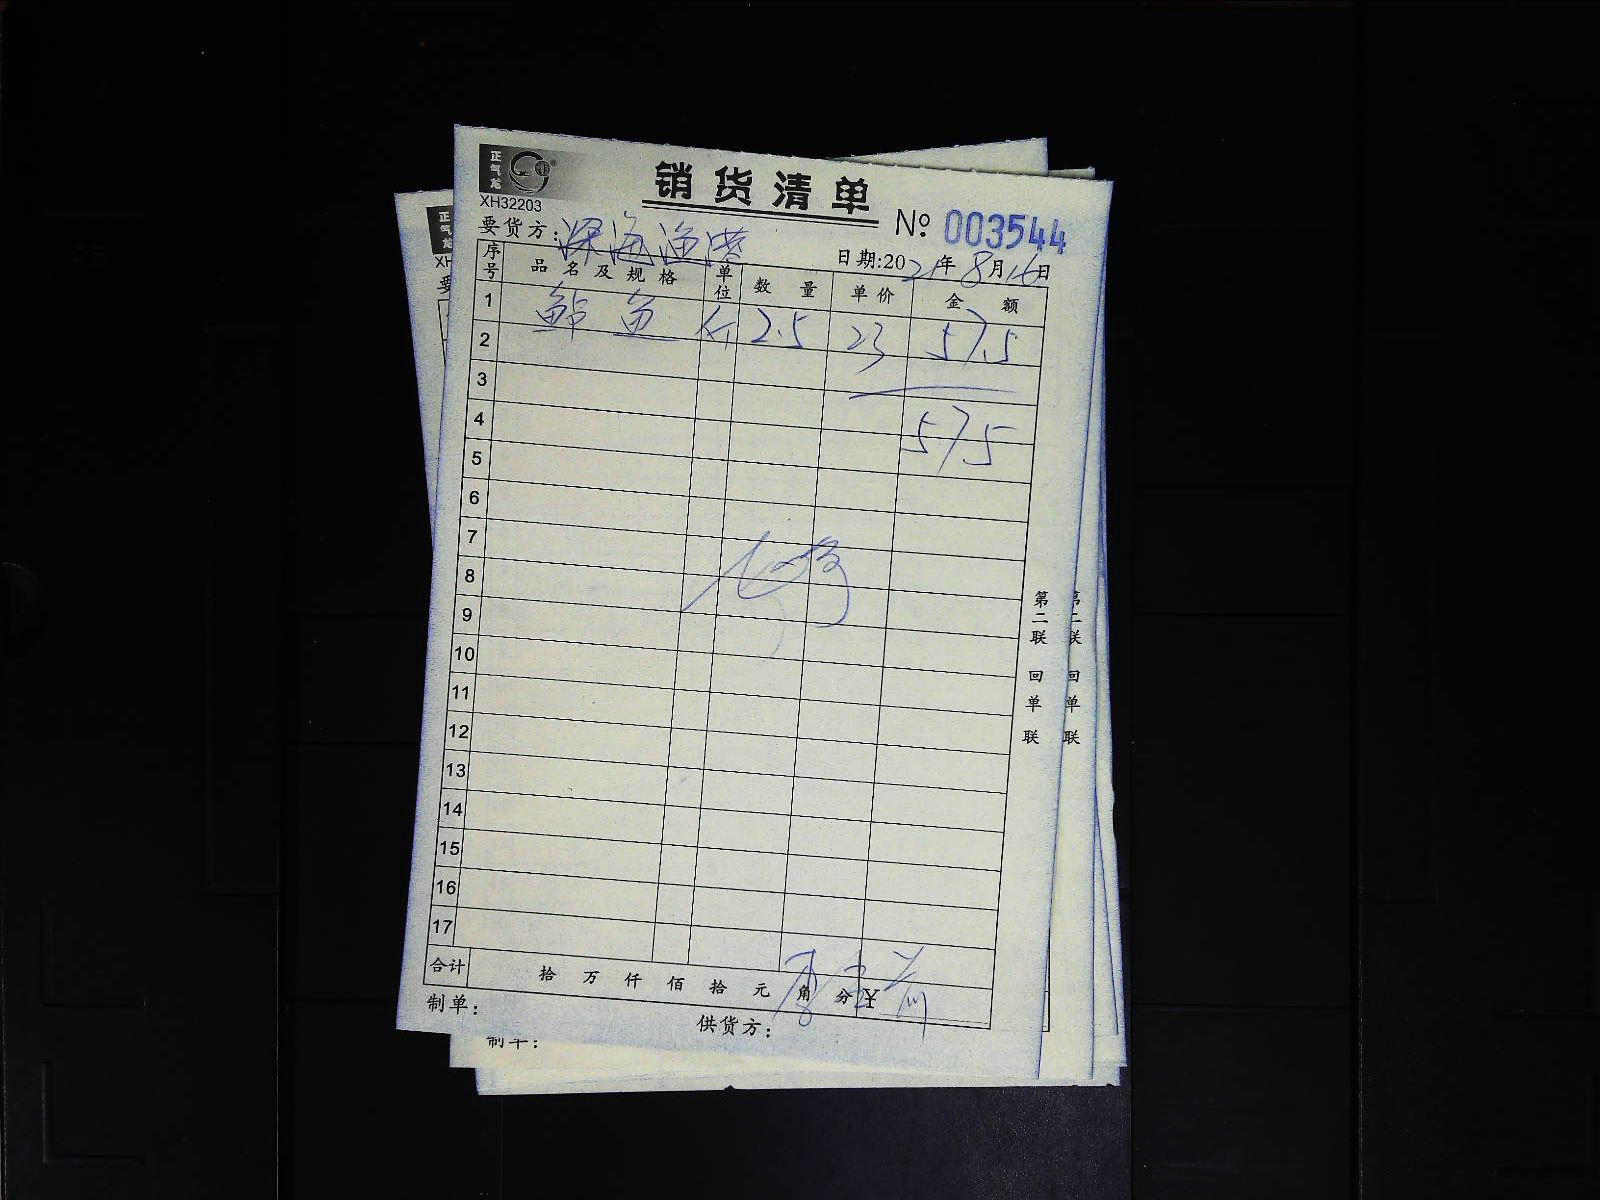 正气龙
XH32203
销货清单
№: 003544
要货方: 深海渔港
日期:2021年8月16日
序号 品名及规格 单位 数量 单价 金额
1 鲇鱼 斤 2.5 23 57.5
2
3
4 57.5
5
6
7
8
9
10
11
12
13
14
15
16
17
合计 拾 万 仟 佰 拾 元 角 分 ¥
制单: 供货方:
第二联 回单联
第二联 回单联
制单: